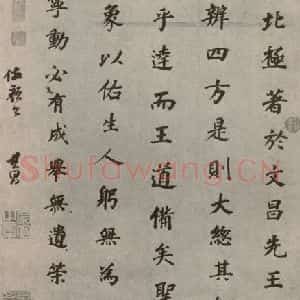 北極著於文昌先王
辨四方是則大總其
乎達而王道備矣聖
象以佑生人躬無為
寧動必有成舉無遺策
Shufawang.CN